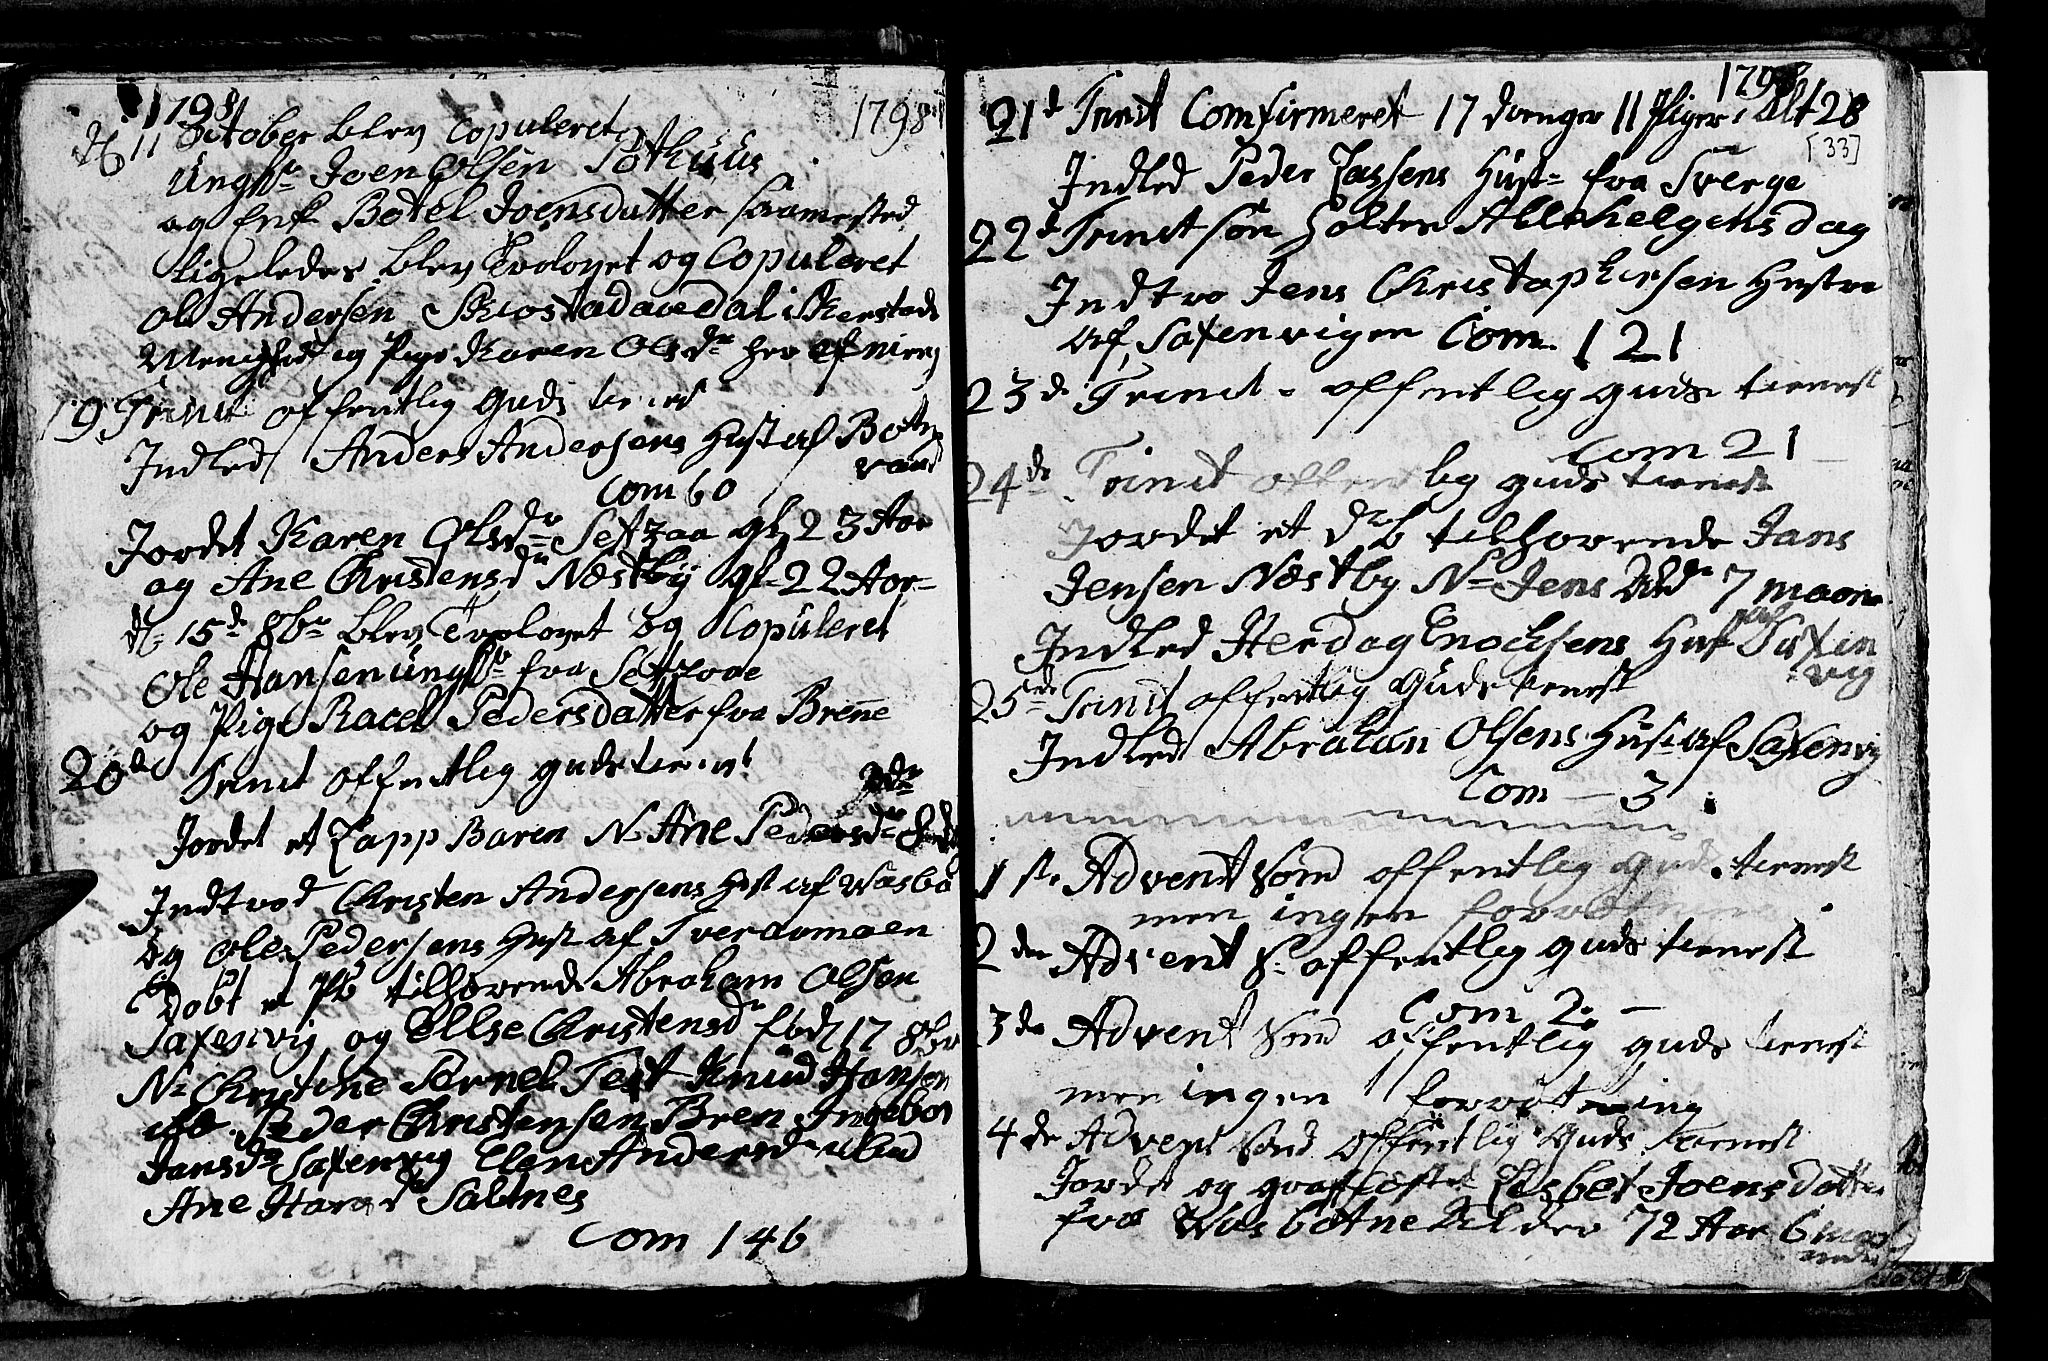 1798
1798
d 11 October blev Copuleret
Ungk Joen Olsen Pothuus
og Enk Botel Joensdatter sammested
ligeledes blev Trolovet og Copuleret
Ole Andersen i Skierstads
Menighed og Pige Karen Olsdr her af
19 Trinit offentlig Guds tienst
Indled Anders Andersens Hust af Botn
vand
Com 60
Jordet Karen Olsdr Setzaa gl 23 Aar
og Ane Christensdr Næstby gl 22 Aar
d 15de 8br blev Trolovet og Copuleret
Ole Hansen ungk fra Setzaae
og Pige Racel Pedersdatter fra Brenne
20de Trinit offentlig guds tienst
Jordet et Lapp Baren N Ane Pedersdr
Indtroed Christen Andersens Hust af Wasbó
og Ole Pedersens Hust af Tveraamoen
Dobt et Pb tilhørende Abraham Olsen
Saxenvig og Ellse Christensdr fód 17 8br
N Christine Pernel Test Knud Hansen
ib. Peder Christensen Bren Ingebor
Jansdr Saxenvig Elen Andersdr ibid
Ane Hansdr Saltnes
Com 146
1798
21d Trinit Comfirmeret 17 drenger 11 Piger i Alt 28
[33]
Indled Peder Lassens Hust fra Sverge
22d Trinit Søn holten Allehelgensdag
Indtro Jens Christophersen Hustro
af Saxenvigen Com. 121
23d Trinit offentlig guds tienest
Com 21
24de Trinit offentlig guds tienest
Jordet et db tilhorende Jans
Jensen Næstby N Jens Ald 7 maan
Indled Herdag Enochsens Hus af Saxen
vig
25de Trinit offentlig Guds tienest
Indled Abraham Olsens Hust af Saxenvig
Com 3
1ste Advent Sond offentlig Guds tienest
men ingen forretning
2den Advent S offentlig guds tienest
Com 2
3de Advent Sond offentlig guds tienest
men ingen forretning
4de Advent Sond offentlig Guds tienest
Jordet og graffæstet Lisbet Joensdatter
fra Wasbotne Alder 72 Aar 6 maa
neder